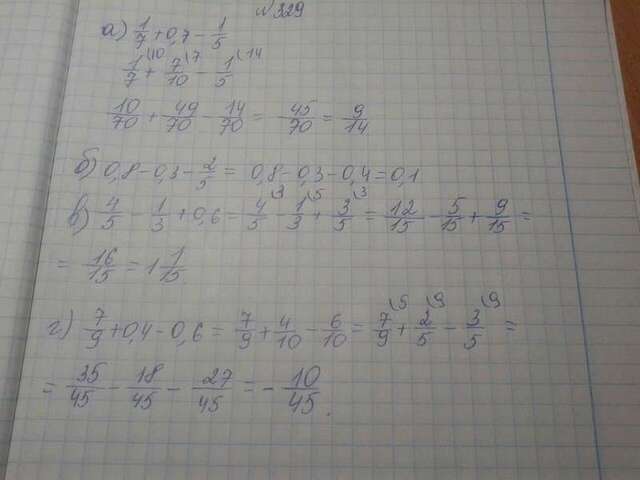 №329
а) 1/7 + 0,7 - 1/5
1/7 \10 + 7/10 \7 - 1/5 \14
10/70 + 49/70 - 14/70 = 45/70 = 9/14
б) 0,8 - 0,3 - 2/5 = 0,8 - 0,3 - 0,4 = 0,1
в) 4/5 - 1/3 + 0,6 = 4/5 \3 - 1/3 \5 + 3/5 \3 = 12/15 - 5/15 + 9/15 =
= 16/15 = 1 1/15.
г) 7/9 + 0,4 - 0,6 = 7/9 + 4/10 - 6/10 = 7/9 \5 + 2/5 \9 - 3/5 \9 =
= 35/45 - 18/45 - 27/45 = - 10/45.